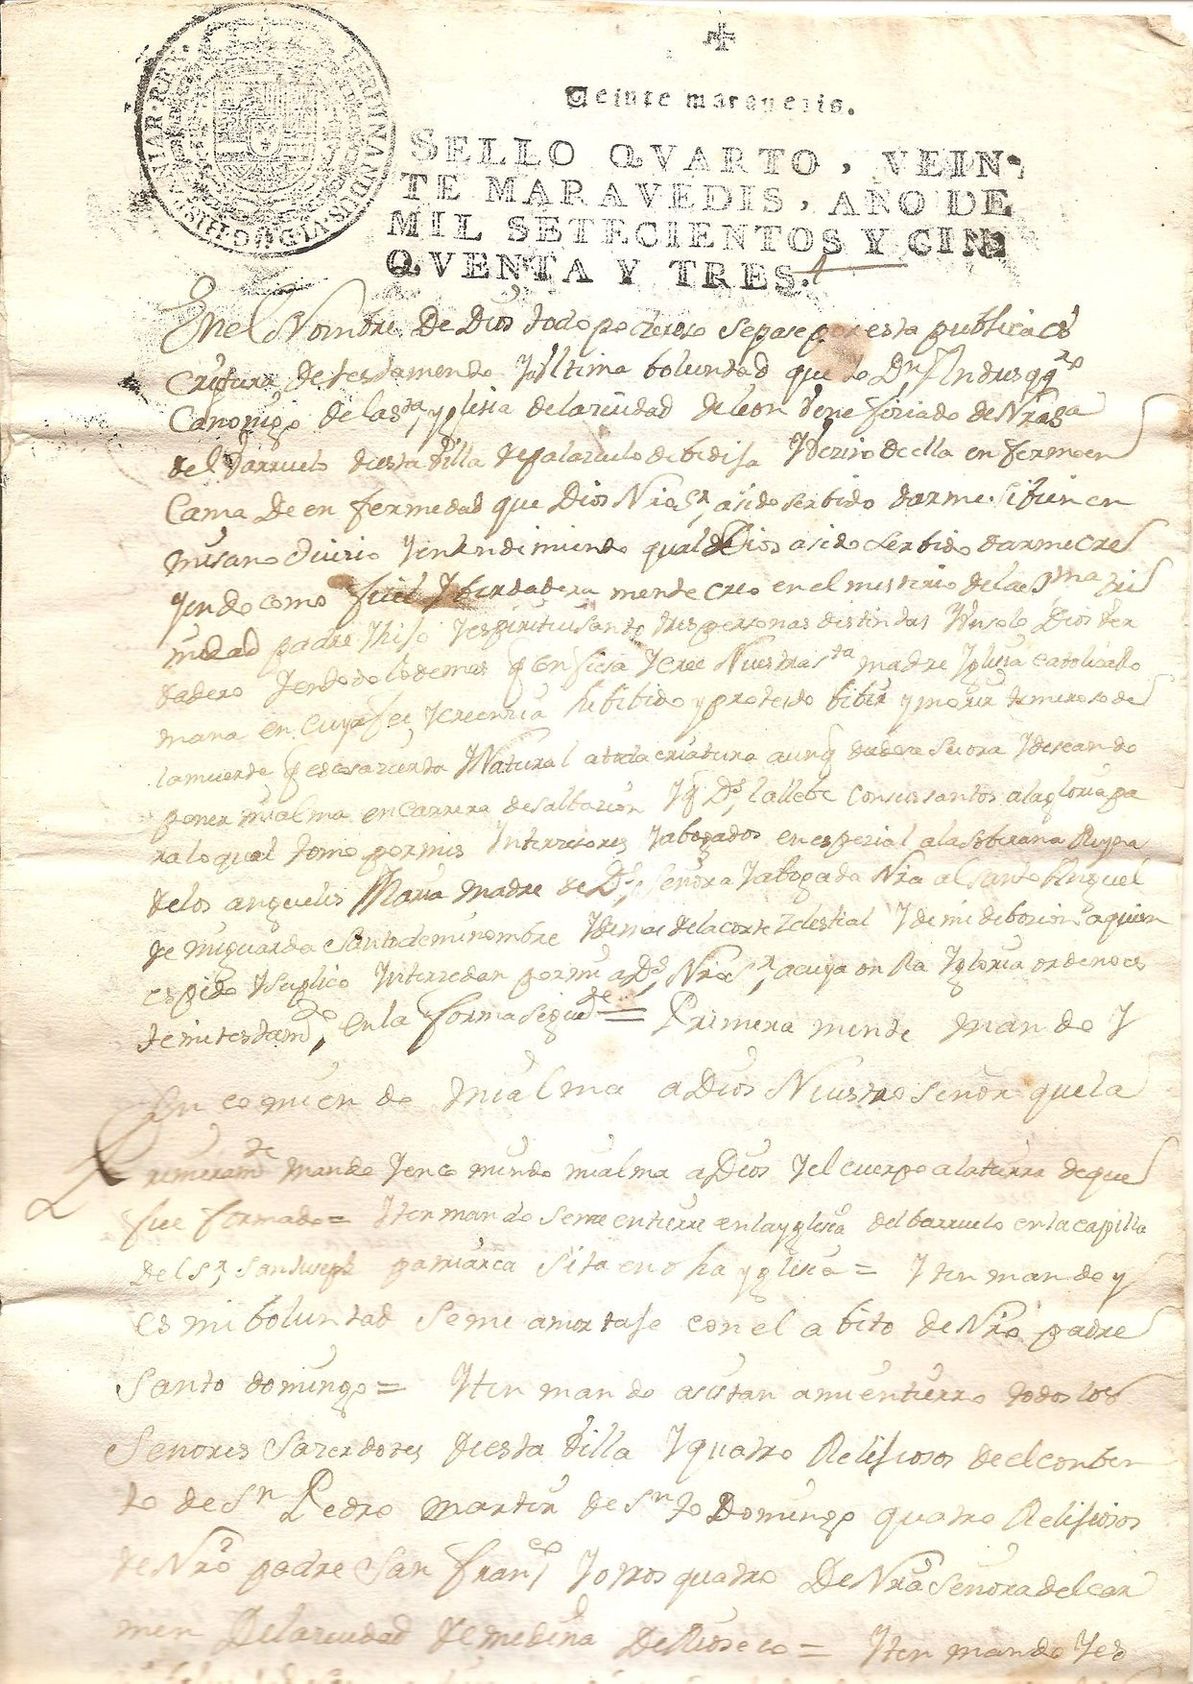 FERDINANDUS·VI·D·G·HISPANIAR·REX·
Veinte maravedis.
SELLO QVARTO, VEIN-
TE MARAVEDIS, AÑO DE
MIL SETECIENTOS Y CIN-
QVENTA Y TRES.
Enel Nombre De Dios todo poderoso sepase por esta publica es
Critura de testamento Yultima boluntad que io Dn Andres
Canonigo de la sta yglesia de la ziudad de leon Venefiziado de Nra sa
del Barruelo de esta Villa de palazuelo de bedija Yvezino de ella enfermo en
Cama De en fermedad que Dios Nro Sr, a sido serbido darme. si bien en
mi sano Juizio Yentendimiendo qual Dios a sido serbido darme cre
Yendo como fiel Yberdadera mente creo en el misterio de la Sma tri
nidad padre Yhijo Yespiritu santo tres personas distintas Yun solo Dios ver
dadero Yen todo lo demas q confiesa Ycree Nuestra sta madre Yglesia catolica Ro
mana en cuya fee Ycreenzia he bibido y protesto bibir y morir temeroso de
la muerte q es cosa zierta YNatural a toda criatura aunq dudosa su ora Ydeseando
poner mi alma en carrera de salbazion Yq Ds, la llebe con sus santos a la gloria pa
ra lo qual tomo por mis Interzesores Yabogados en espezial a la soberana Reyna
de los angeles Maria madre de Ds, señora Yabogada Nra al santo Anguel
de mi guarda santo de mi nombre Ydemas de la corte zelestial Yde mi debozion a quien
es pido Ysuplico Interzedan por mi a Ds, Nro Sr, a cuya onRa Ygloria ordeno es
te mi testamto, en la forma sigute = Primera mente mando Y
En comien do mi alma a Dios Nuestro señor que la
Primeramte mando Yencomiendo mi alma a Dios Yel cuerpo a la tierra de que
fue formado = Yten mando se me entierre en la yglesia del barruelo en la capilla
Del Sr, San Juseph patriarca sita en dha yglesia = Yten mando y
es mi boluntad se me amortaje con el abito de Nro padre
Santo domingo = Yten mando asistan a mi entierro todos los
Señores Sazerdotes de esta Villa Yquatro Relijiosos de el conben
to de Sn Pedro martir de Snto Domingo quatro Relijiosos
de Nro padre San Franco Yotros quatro De Nra Señora del car
men De la ziudad de medina De Rioseco = Yten mando Yes